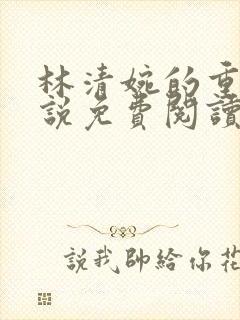 林清婉的重
説免費閱讀
説我帥給你花